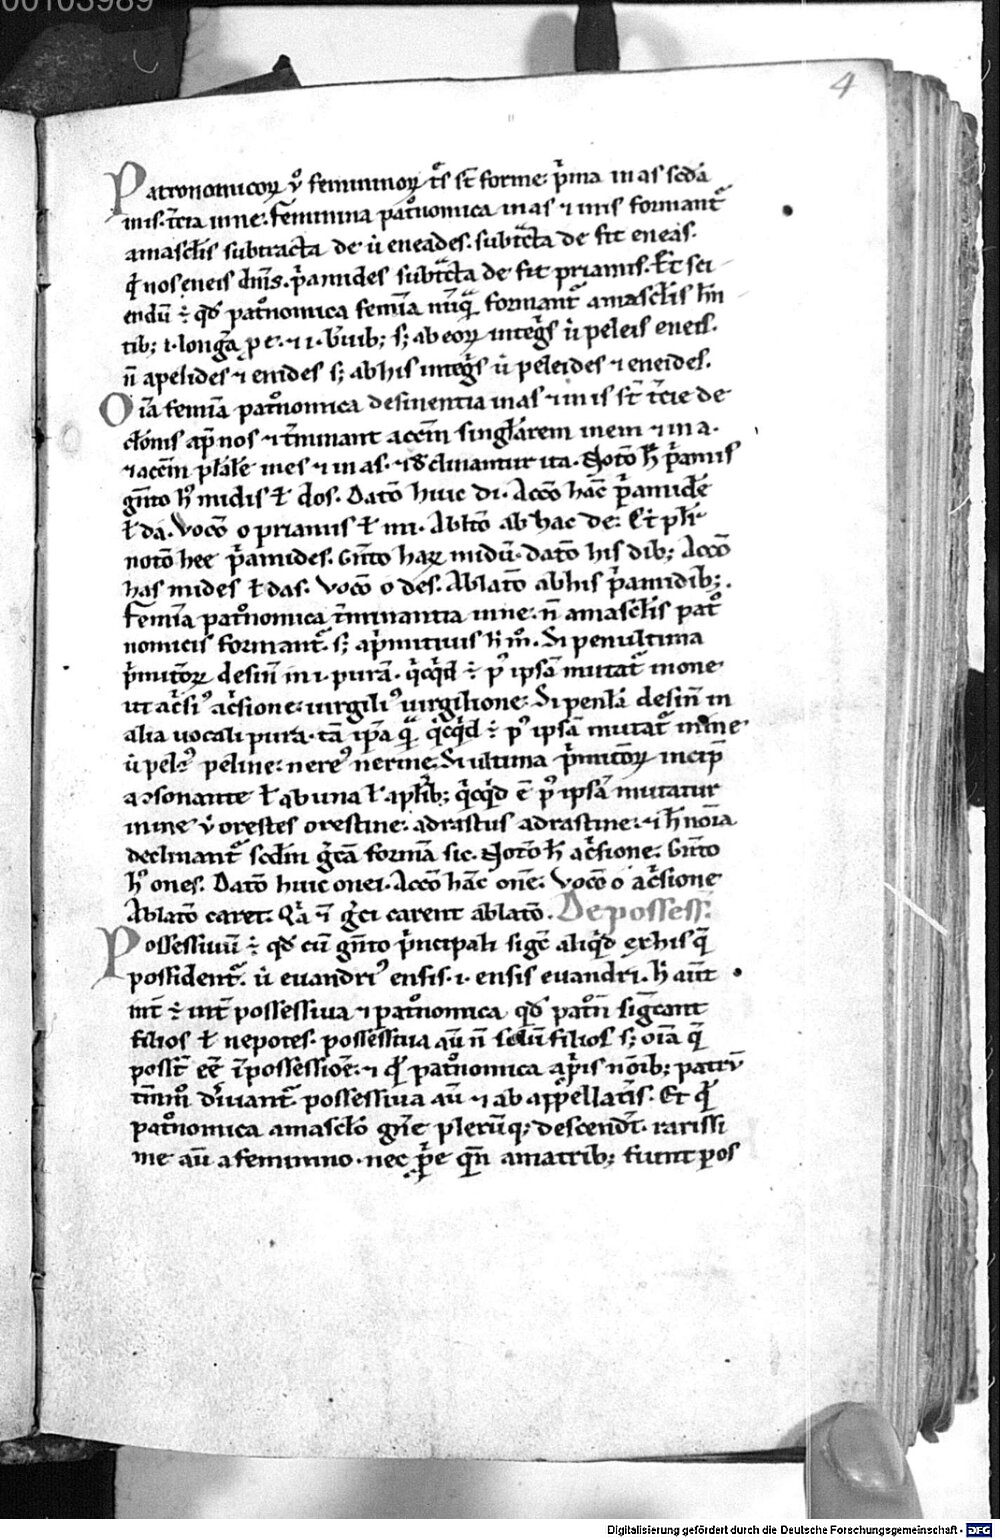 00103989
4
Patronomicoꝝ ṽ femininoꝝ t̃s st̄ forme. p̃ma in as scd̄a
in is. t̃cia in ne. feminina pat̃nomica in as ⁊ in is formant̃
a mascl̃is subtracta de ut̃ eneades. subt̃cta de fit eneas.
q̃ nos eneis dicim̃s. p̃amides subt̃cta de fit priamis. Et̃ sci
endū ÷ qđ pat̃nomica femīa nūq̃ formant̃ a mascl̃is
tib; i. longa p e. ⁊ i. s; ab eoꝝ integ̃s ut̃ peleis eneis.
n̄ a pelides ⁊ enides s; ab his integ̃s ut̃ peleides ⁊ eneides.
Oīa femīa pat̃nomica desinentia in as ⁊ in is st̄ t̃cie de
clōnis ap̃ nos ⁊ t̃minant accm̄ singl̃arem in em ⁊ in a.
⁊ accm̄ pl̃ale in es ⁊ in as. ⁊ declinantur ita. Notō h̃ p̃amis
gn̄to h̃ midis ł dos. Datō huic di. Accō hāc p̃amidē
ł da. Vocō o priamis ł mi. Abltō ab hac de. Et pl̃r
notō hee p̃amides. Gn̄to haꝝ midū. datō his dib; Accō
has mides ł das. Vocō o des. Ablatō ab his p̃amidib;.
Femīa pat̃nomica t̃minantia in ne. n̄ a mascl̃is pat̃
nomicis formant̃. s; a p̃mitiuis h̃ m̃. Si penultima
p̃mitiuoꝝ desin̄ in i. purā. q̃cq̃d ÷ p̃ ipsā mutat̃ in one
ut ac̃si᾿ ac̃sione. uirgili᾿ uirgilione. Si penl̃a desin̄ in
alia uocali pura. tā ip̄a q̃ q̃cq̃d ÷ p᾿ ipsā mutat̃ in ine
ut̃ pele᾿ peline. nere᾿ nerine. Si ultima p̃mitiuoꝝ incip̄
a ɔsonante ł ab una ł a plr̃ib; q̃cq̃d ē p᾿ ipsā mutatur
in ine ṽ orestes orestine. adrastus adrastine. ⁊ h̃ noīa
declinant̃ scđm g̃cā formā sic. Notō h̃ ac̃sione. Gn̄to
h᾿ ones. Datō huic onei. Accō hāc onē. Vocō o ac̃sione
Ablatō caret. Q̃a ⁊ g̃ci carent ablatō. De possess̃.
Possessiuū ÷ qđ cū gn̄to p̃ncipali sigc̄ aliq̃d ex his q̃
possident̃. ut̃ euandri᾿ ensis. i. ensis euandri. h̃ aūt
int̃ ÷ int̃ possessiua ⁊ pat̃nomica qđ pat̃n̄ sigc̄ant
filios ł nepotes. possessiua aū n̄ solū filios s; oīa q̃
poss̃t eē ī possessiōe. ⁊ q̃ pat̃nomica a p̃p̃is nōib; patrū
tm̄m̃ d̃iuant̃. possessiua aū ⁊ ab appellatis. Et q̃
pat̃nomica a masclō gn̄e plerūq; descendt̃. rarissi
me aū a feminino. nec p̃e q̄n a matrib; fiunt pos
Digitalisierung gefördert durch die Deutsche Forschungsgemeinschaft - DFG